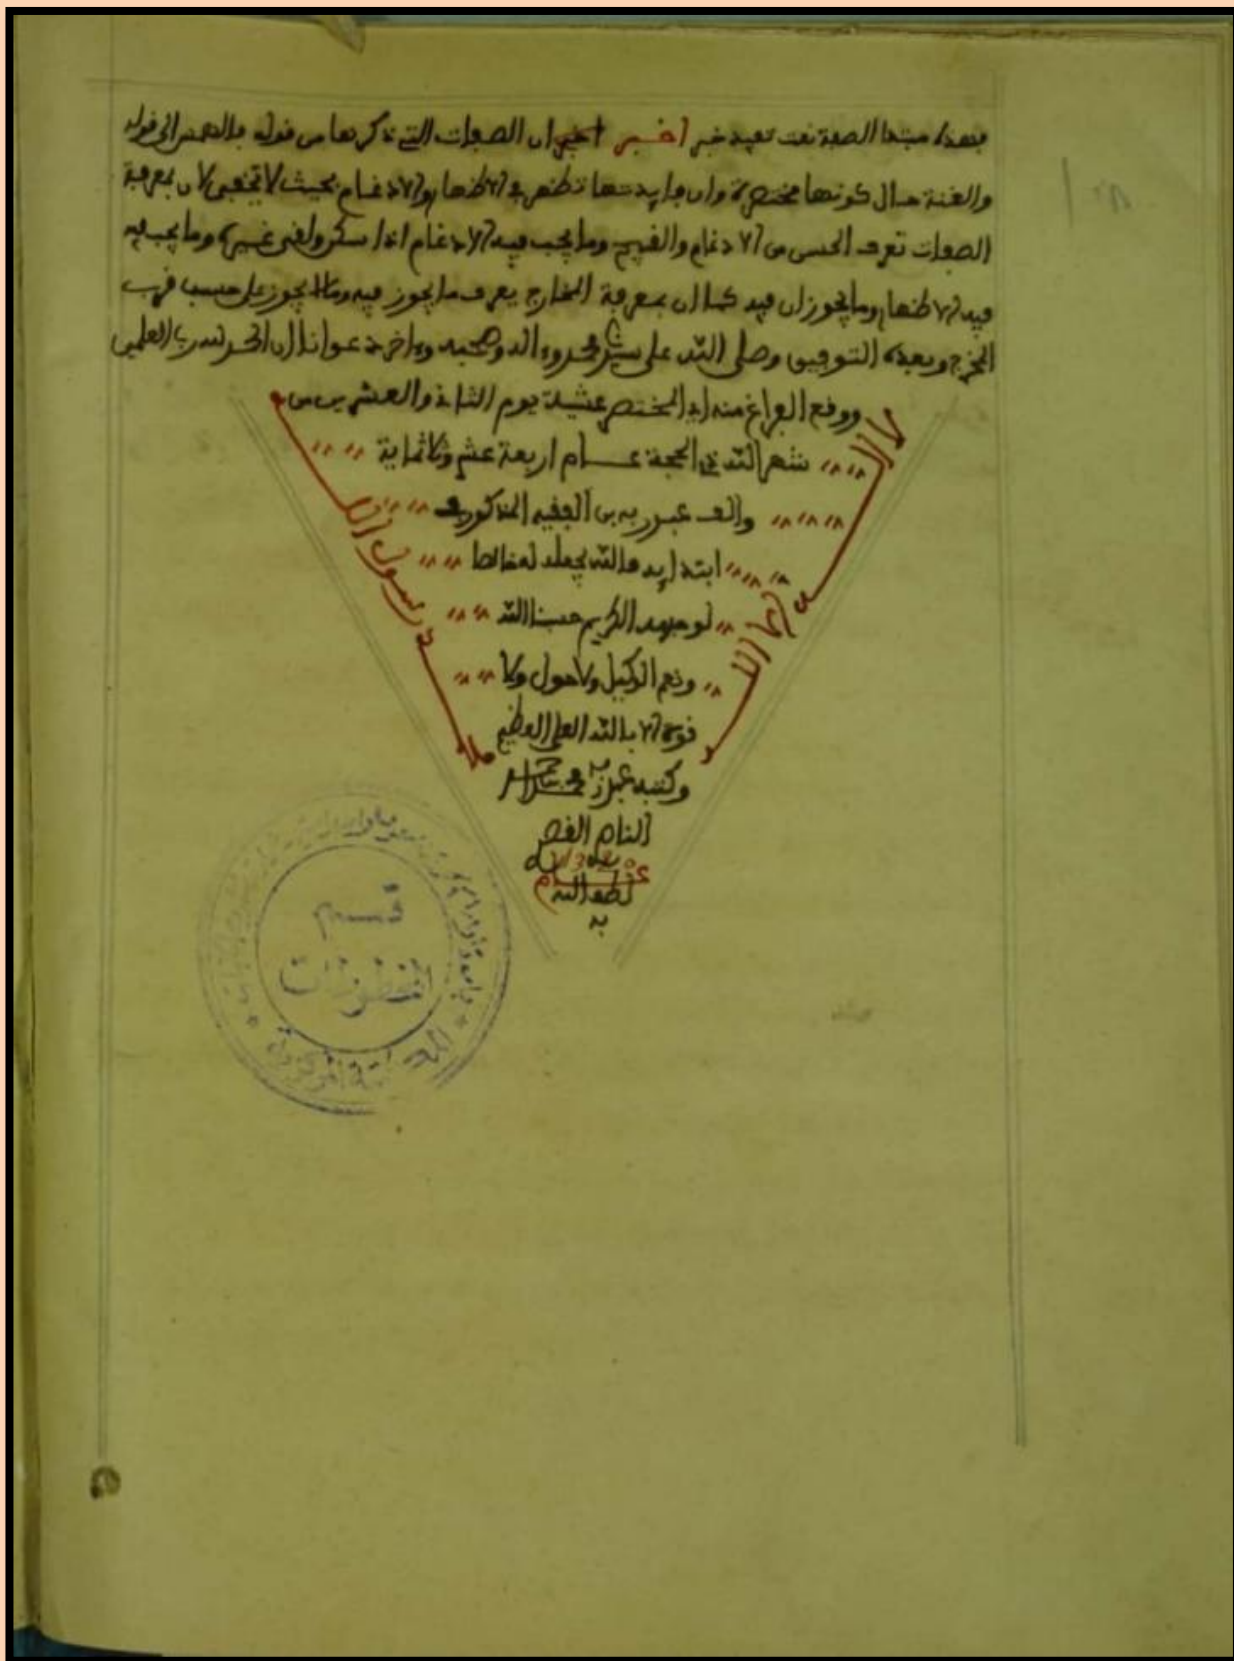 فهذا مبتدا الصفة نعت تفيد خبر اخبر ان الصفات التي ذكرها من قوله بالهمس الى قوله
والغنة حال كونها مختصرة وان فايدتها تظهر في الاظهار والادغام بحيث لا تخفى لان بمعرفة
الصفات تعرف الحسن من الادغام والقبيح وما يجب فيه الادغام اذا سكن ولقى غيره وما يجب فيه
فيه الاظهار وما يجوز ان فيه كما ان بمعرفة المخارج يعرف ما يجوز فيه وما لا يجوز على حسب قرب
المخرج وبعده التوفيق وصلى الله على سيدنا محمد وءاله وصحبه وءاخر دعوانا ان الحمد لله رب العلمين
ووقع الفراغ منه اي المختصر عشية يوم الثاني والعشرين من
شهر الله ذي الحجة عــام اربعة عشر وثلاثماية
والف عبد ربه بن الفقيه المذكور في
ابتدايه والله يجعله لنا خالصا
لوجهه الكريم حسبنا الله
ونعم الوكيل ولا حول ولا
قوة الا بالله العلي العظيم
وكتبه
لا اله الا الله
محمد رسول الله
عــام
لطف الله
به
قسم
المخطوطات
المكتبة المركزية